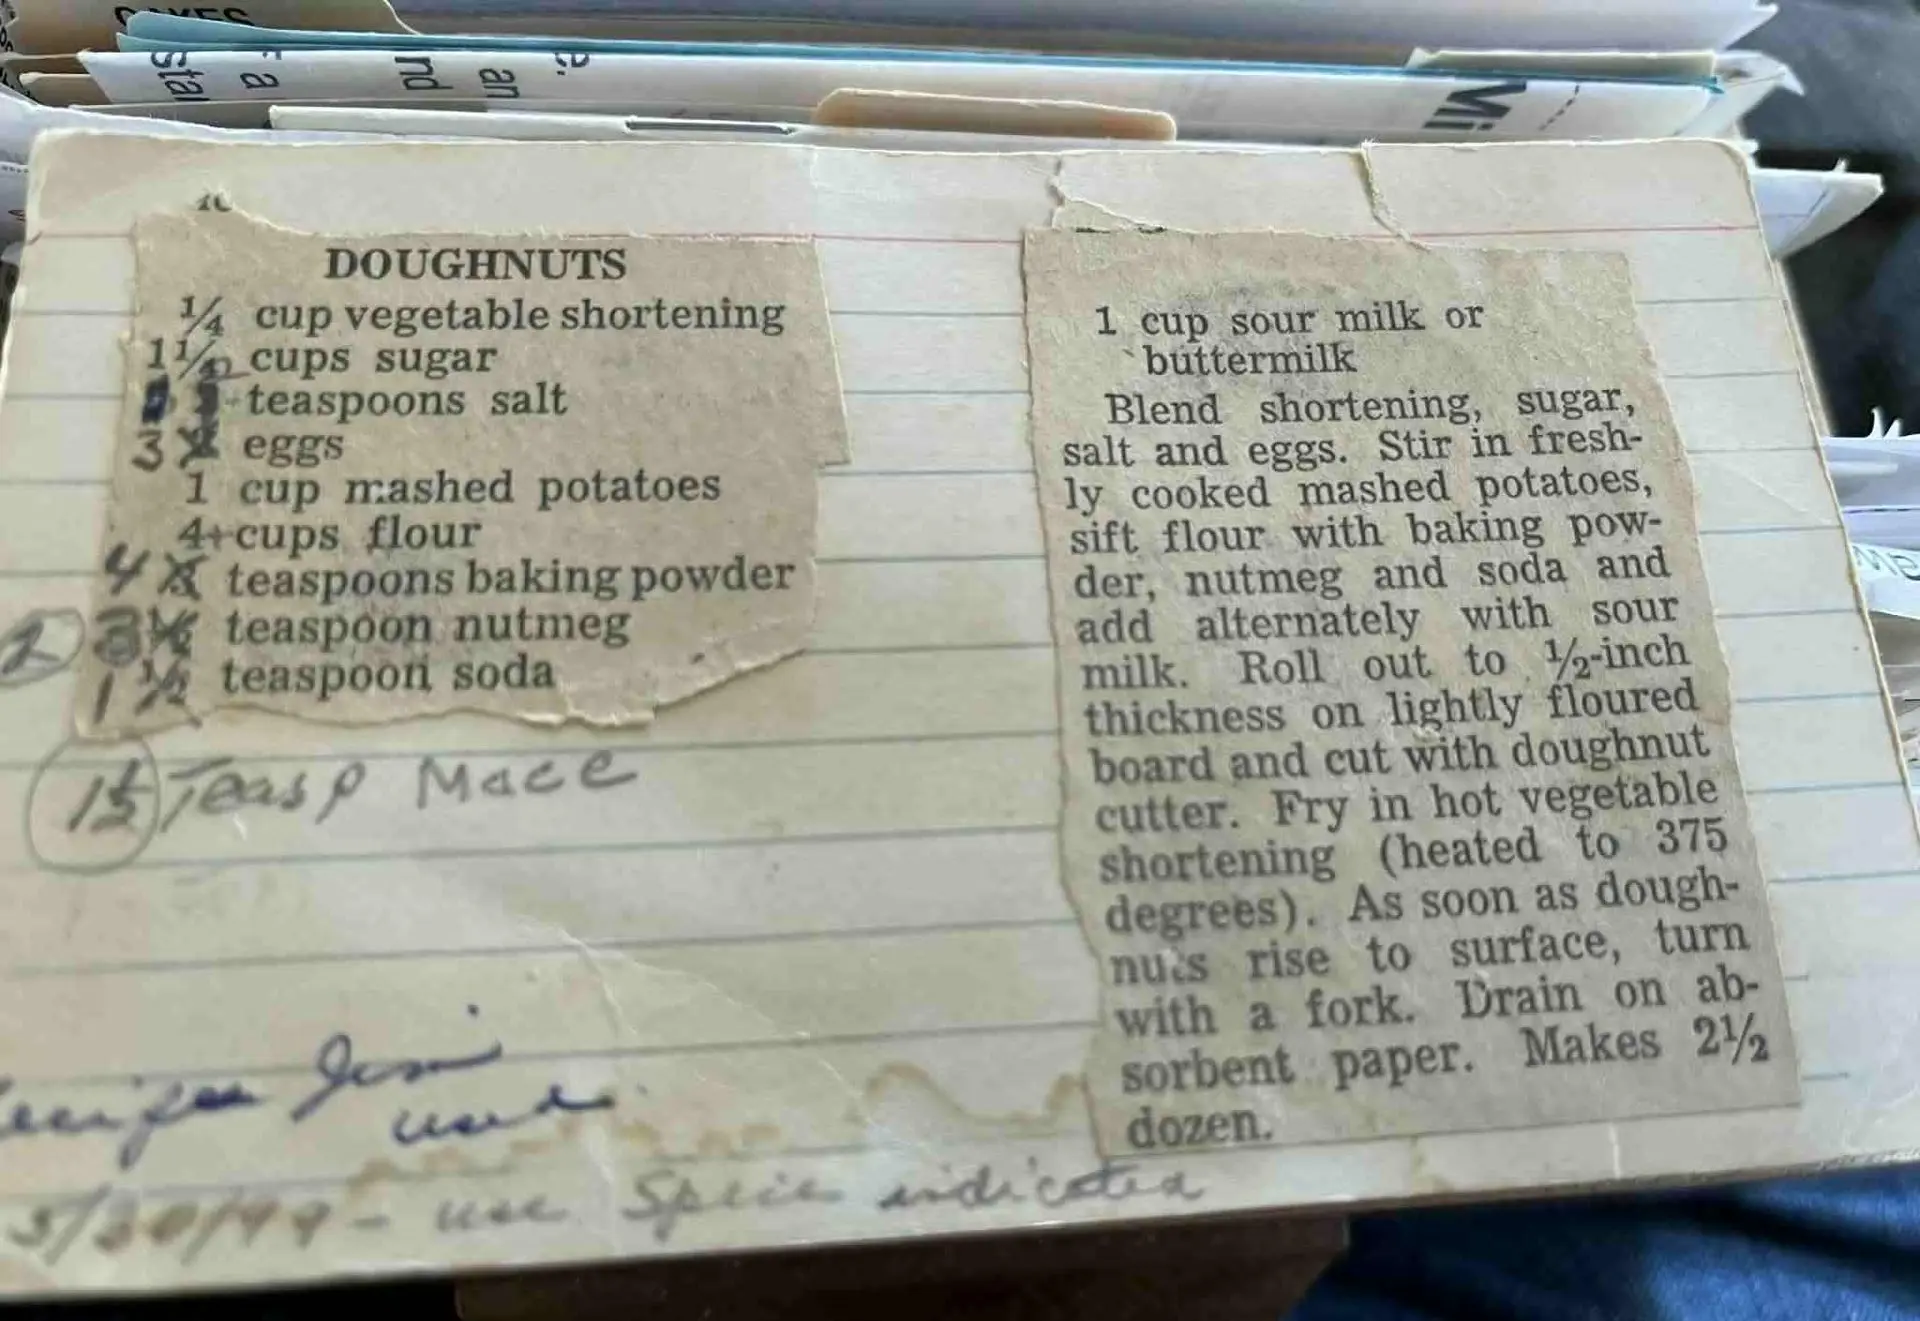 CAKES
sta
r a
nd
an
e.
Mi
DOUGHNUTS
1/4 cup vegetable shortening
1 1/2 cups sugar
teaspoons salt
3 eggs
1 cup mashed potatoes
4+ cups flour
4 teaspoons baking powder
2 3 teaspoon nutmeg
1 1/2 teaspoon soda
1½ Teasp Mace
used
5/20/99 - use Spice indicated
1 cup sour milk or
buttermilk
Blend shortening, sugar,
salt and eggs. Stir in fresh-
ly cooked mashed potatoes,
sift flour with baking pow-
der, nutmeg and soda and
add alternately with sour
milk. Roll out to 1/2-inch
thickness on lightly floured
board and cut with doughnut
cutter. Fry in hot vegetable
shortening (heated to 375
degrees). As soon as dough-
nuts rise to surface, turn
with a fork. Drain on ab-
sorbent paper. Makes 2 1/2
dozen.